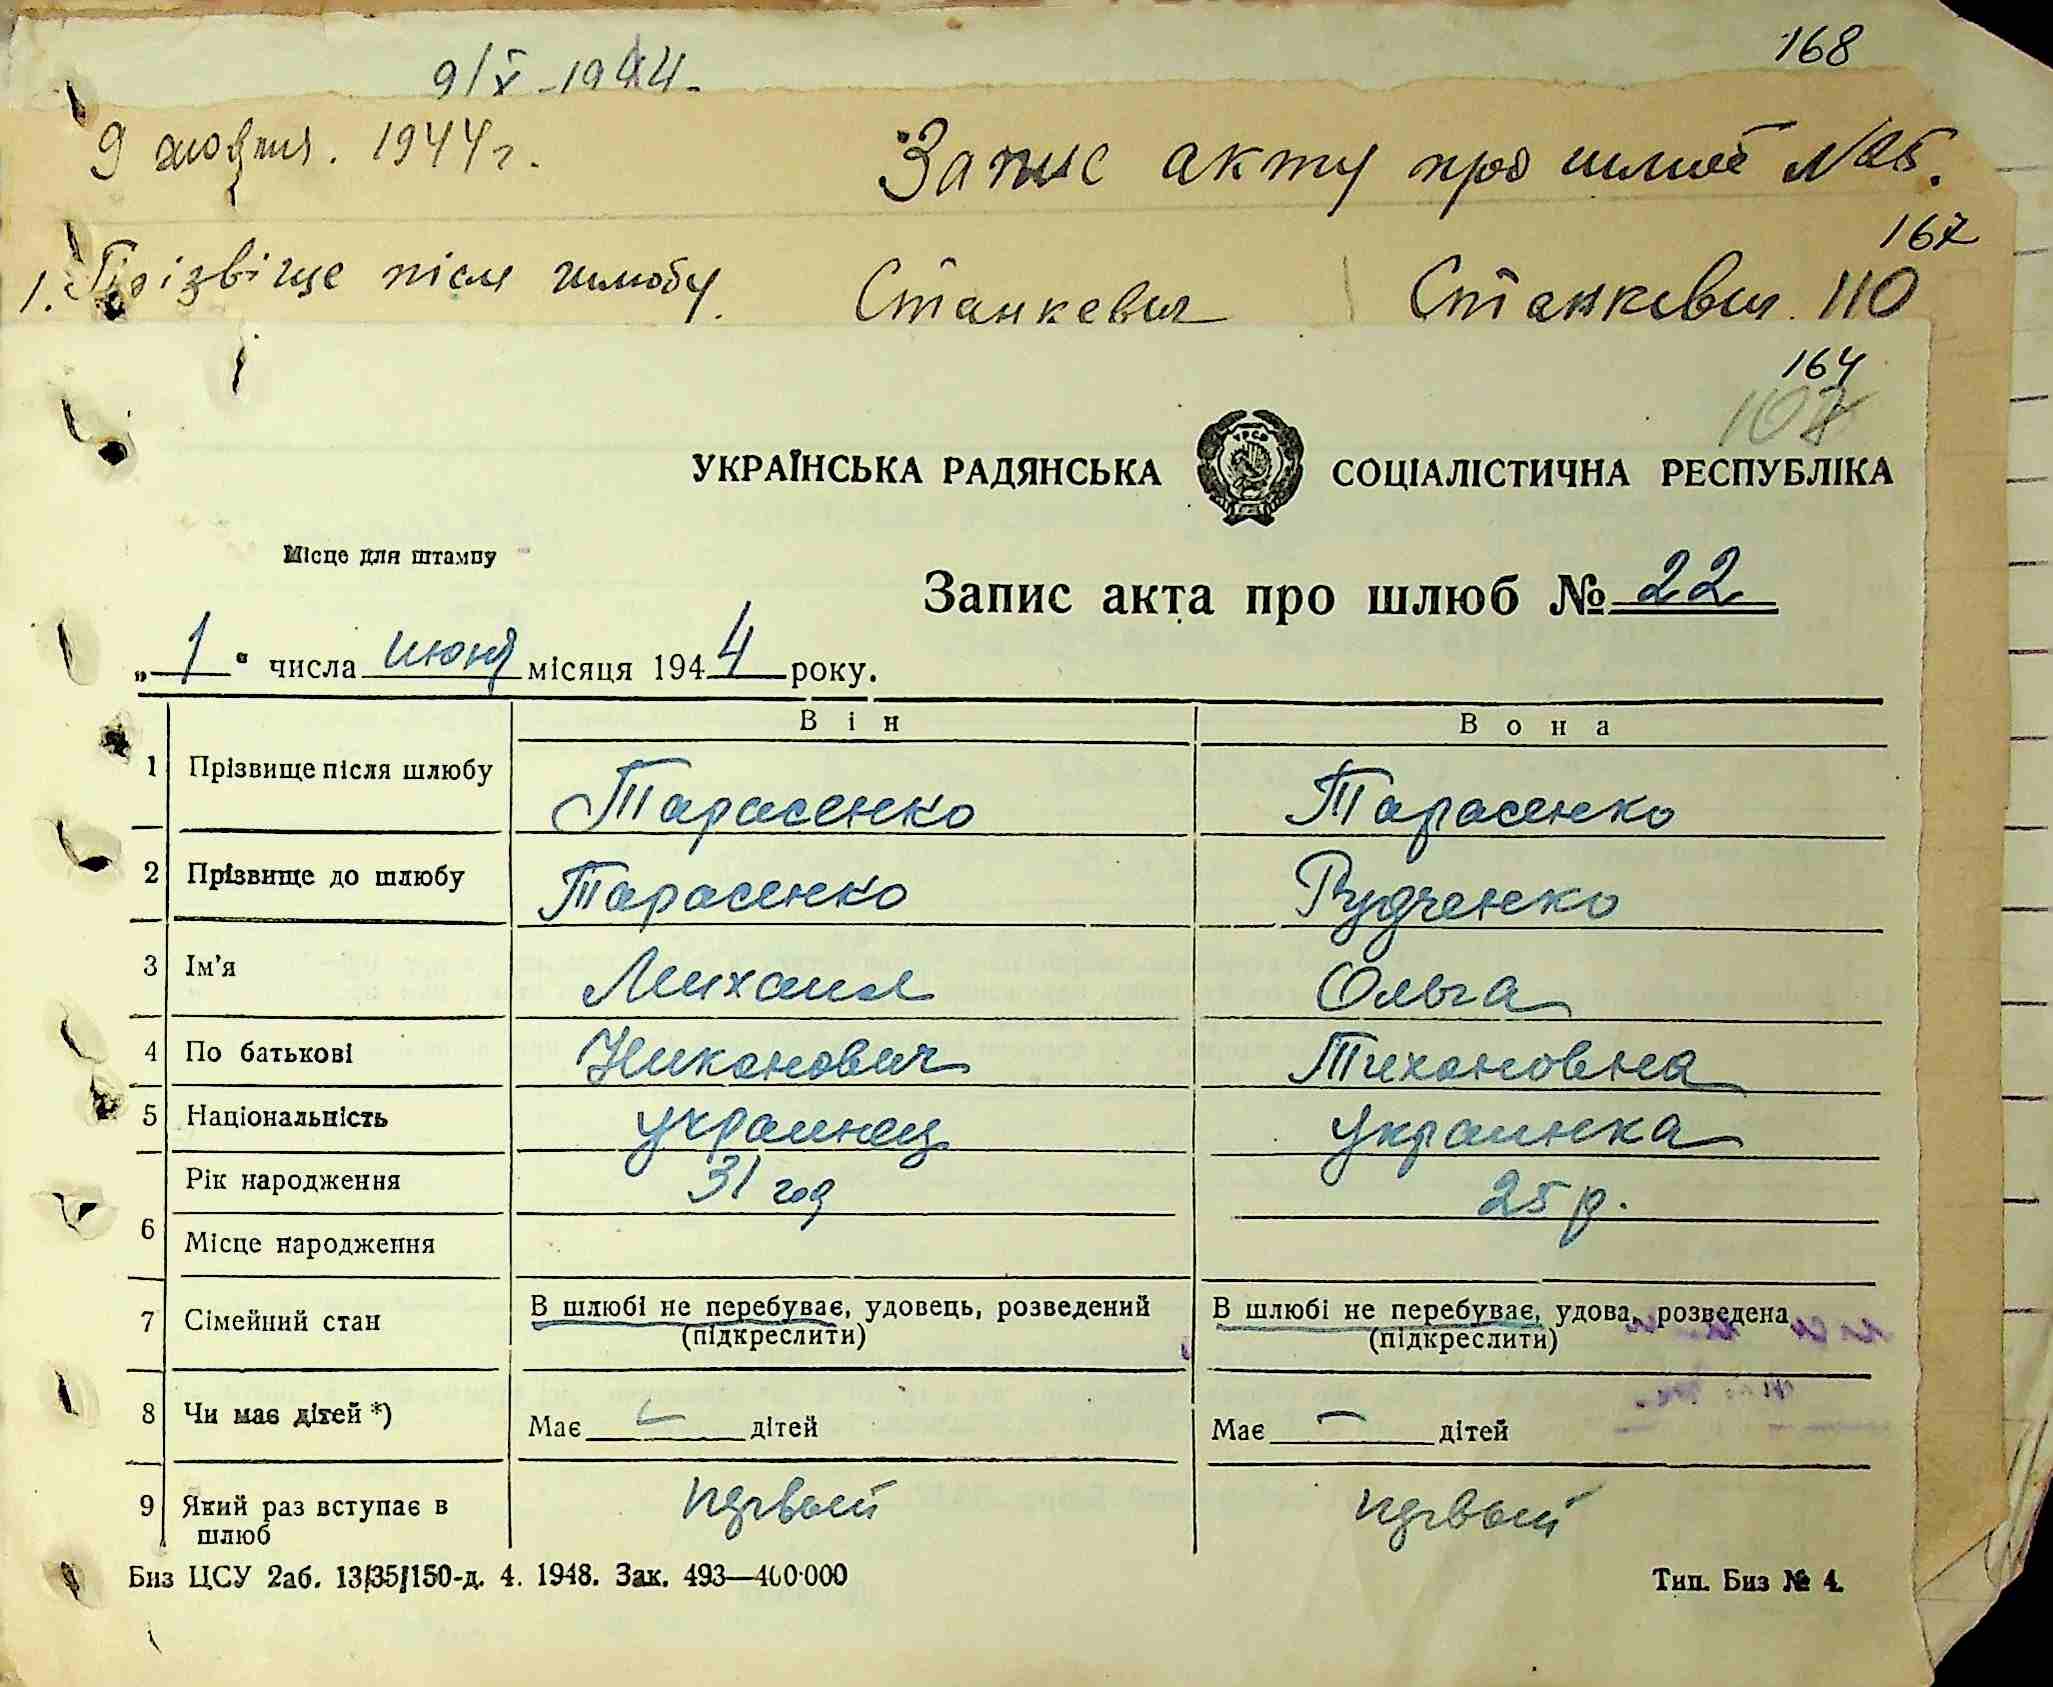 168
9/X-1944.
9 жовтня. 1944 г. Запис акту про шлюб №25.
167
1. Прізвіще після шлюбу. Станкевич Станкевич. 110
164
107
УКРАЇНСЬКА РАДЯНСЬКА СОЦІАЛІСТИЧНА РЕСПУБЛІКА
Місце для штампу
Запис акта про шлюб № 22
„ 1 " числа июня місяця 1944 року.
Він Вона
1 Прізвище після шлюбу Тарасенко Тарасенко
2 Прізвище до шлюбу Тарасенко Рудченко
3 Ім'я Михаил Ольга
4 По батькові Никонович Тихоновна
5 Національність украинец украинка
6 Рік народження 31 год 25 р.
Місце народження
7 Сімейний стан В шлюбі не перебуває, удовець, розведений В шлюбі не перебуває, удова, розведена
(підкреслити) (підкреслити)
8 Чи має дітей *) Має — дітей Має — дітей
9 Який раз вступає в первый первый
шлюб
Биз ЦСУ 2аб. 13/35/150-д. 4. 1948. Зак. 493—400·000 Тип. Биз № 4.